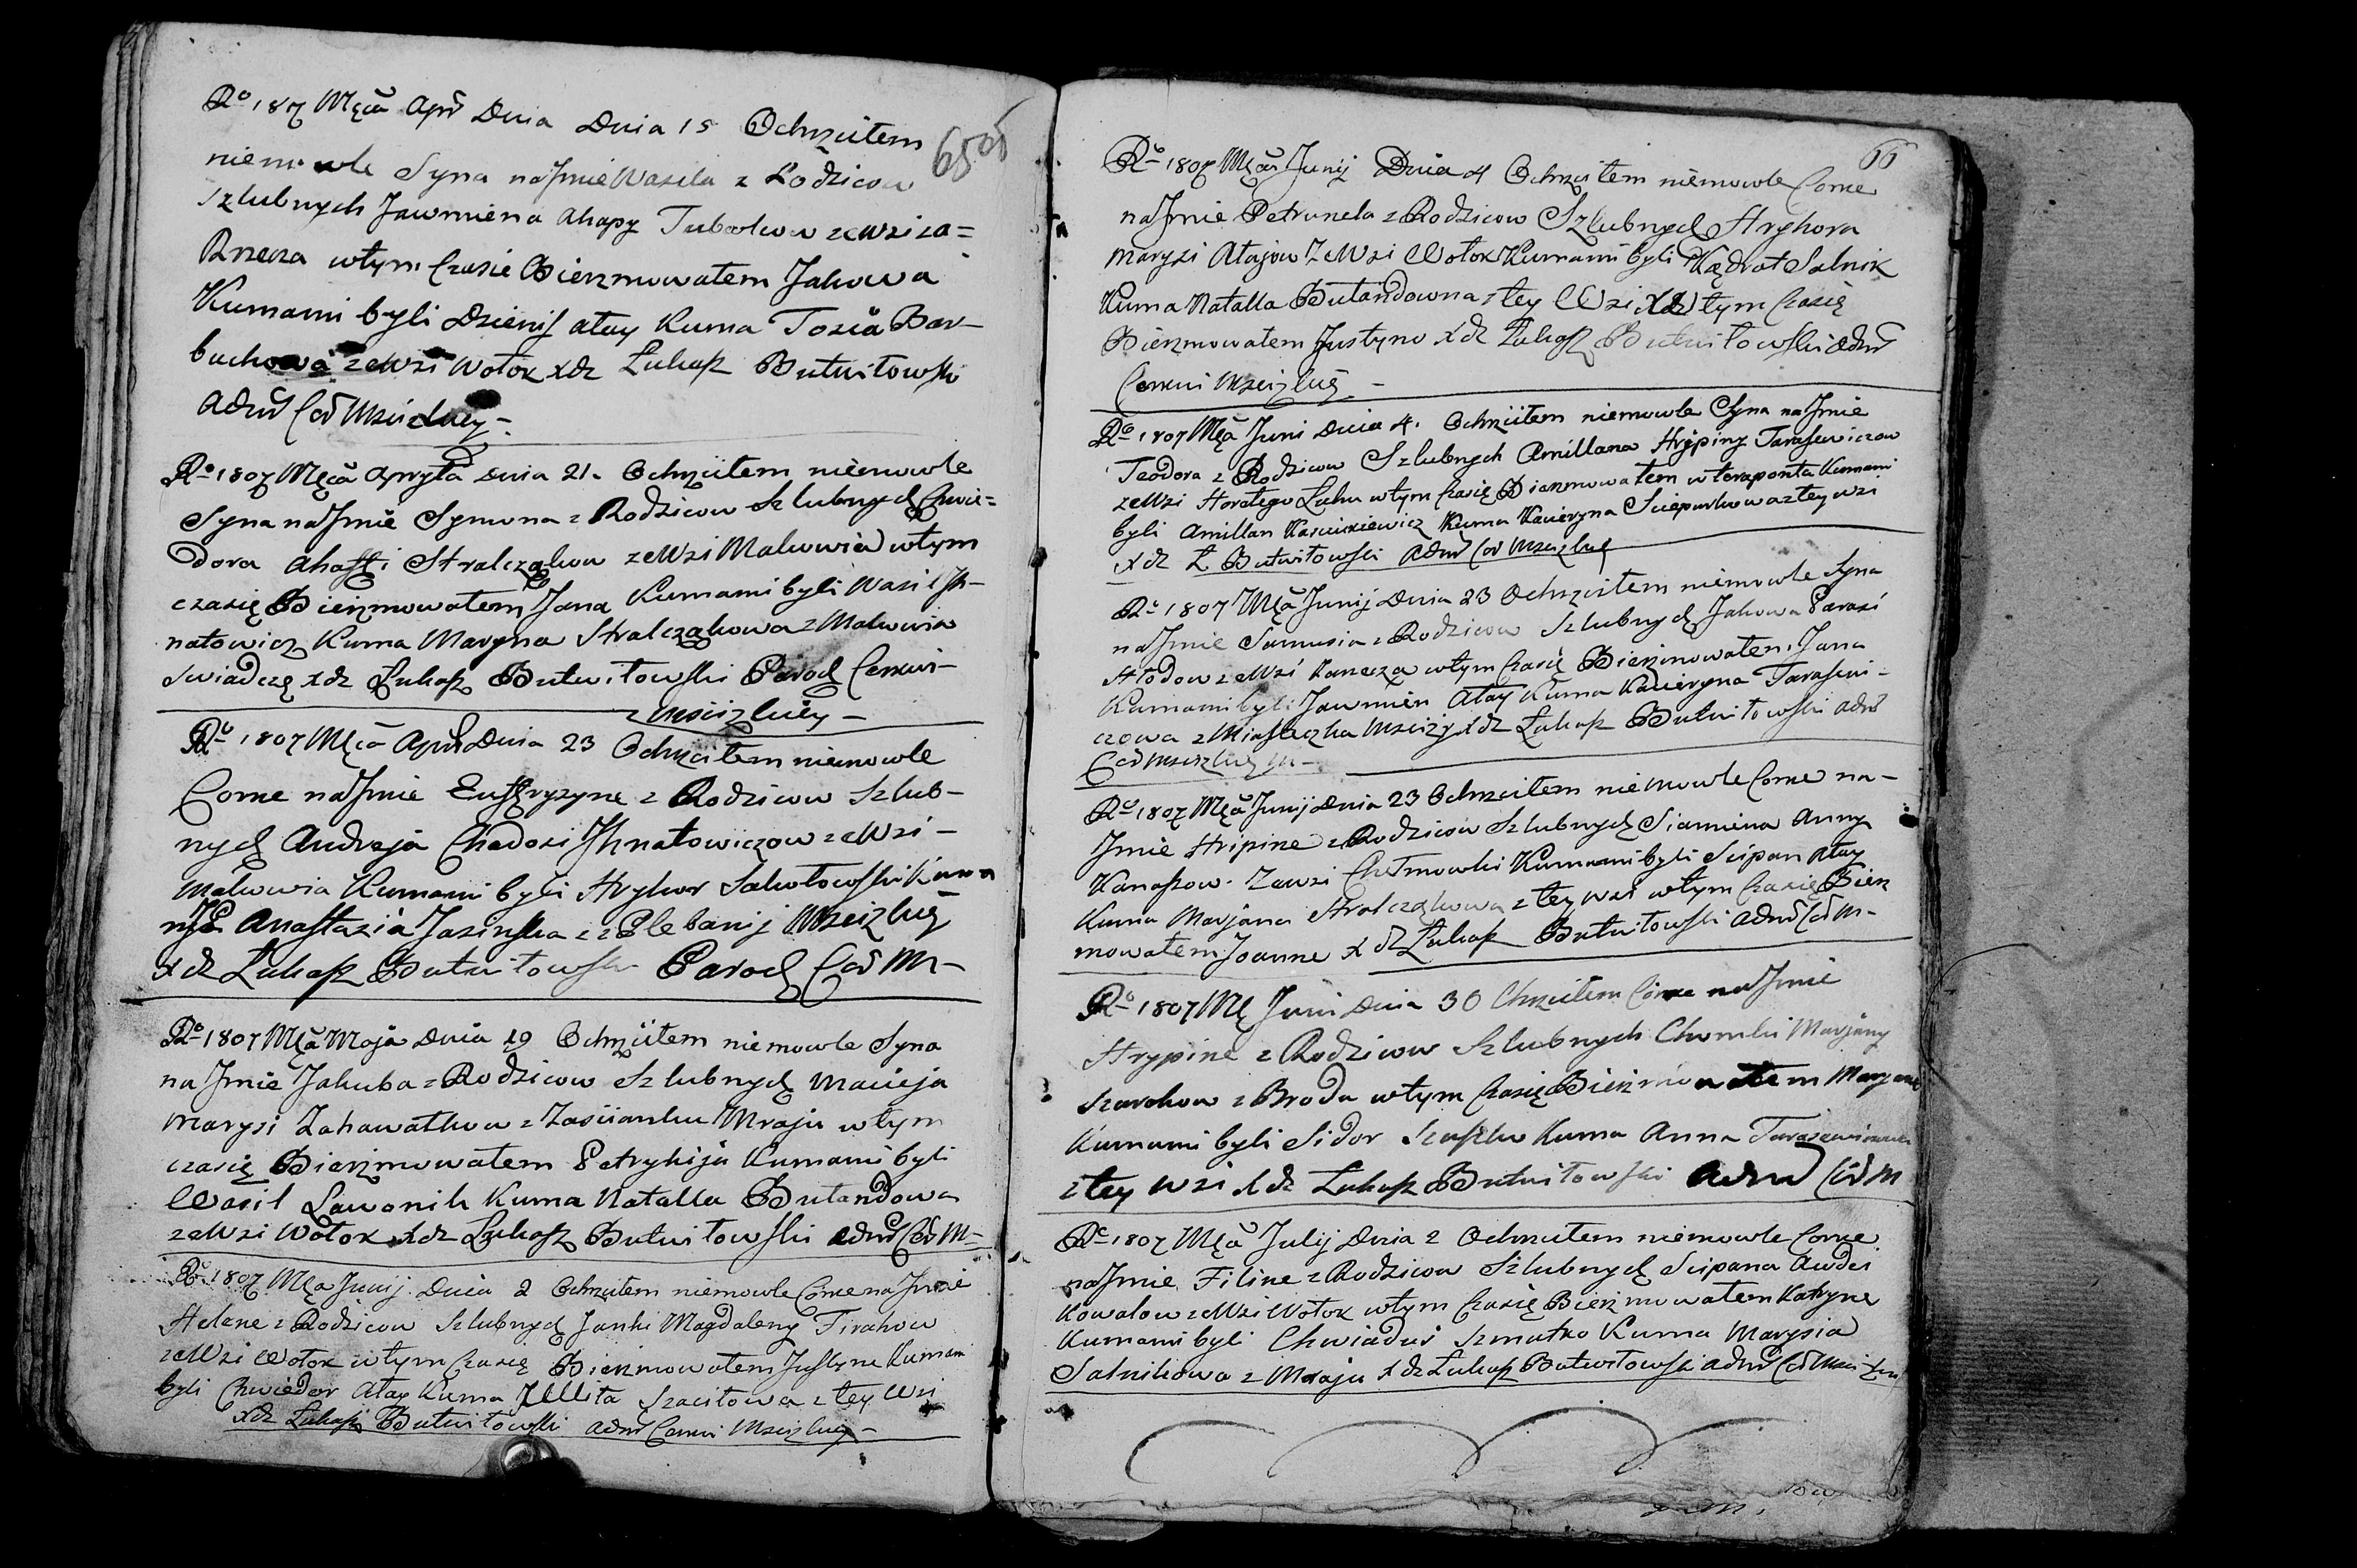 Ro 1807 Męca Apr Dnia Dnia 15 Ochrzciłem
65
niemowle Syna na Jmie Wasila z Rodzicow
szlubnych Jawmiena Ahapy zewsi za=
Rzecza wtym Czasie Bierzmowałem Jakowa
Kumami byli Dzienis ałay Kuma Tosia Bar-
buchowa zewsi Wołok xdz Łukasz Butwiłowski
Adm Cer Mscizkiey -
Ro 1807 Męca apryla dnia 21. Ochrzciłem niemowle
Syna na Jmie Symona z Rodzicow Szlubnych Chwie=
dora Ahafii Stralczakow zewsi Makowia wtym
czasię Bierzmowałem Jana Kumami byli Wasil Jh-
natowicz Kuma Maryna Stralczakowa z Makowia
Swiadczę xdz Łukasz Butwiłowski Paroch Cerkwi-
Mscizkiey -
Ro 1807 Męca Apr Dnia 23 Ochrzciłem niemowle
Corne na Jmie z Rodzicow Szlub-
nych Andreja Chadosi Jhnatowiczow zewsi -
Makowia Kumami byli Hryhor Sakołowski Kuma
Anastazia Jasinska z Plebanij Mscizkiey
xdz Łukasz Butwiłowski Paroch Cer M-
Ro 1807 Męca Maja Dnia 19 Ochrzciłem niemowle Syna
na Jmie Jakuba z Rodzicow Szlubnych Macieja
Marysi Zahawałkow z Zascianku Mraju wtym
czasię Bierzmowałem Patrykija Kumami byli
Wasil Lawonik Kuma Natalla Butandowa
zewsi Wołok xdz Łukasz Butwiłowski adm Cer M-
Ro 1807 Męca Junij Dnia 2 Ochrzciłem niemowle Corne na Jmie
Helene z Rodzicow Szlubnych Janki Magdaleny Tirakow
zewsi Wołok wtym Czasię Bierzmowałem Justyne Kumami
byli Chwiedor Ałay Kuma Szaciłowa z tey Wsi
xdz Łukasz Butwiłowski adm Cerkwi Mscizkiey -
66
Ro 1807 Męca Junij Dnia 4 Ochrzciłem niemowle Corne
na Jmie Petrunela z Rodzicow Szlubnych Hryhora
Marysi Ałajow Zewsi Wołok Kumami byli Kędrat Salnik
Kuma Natalla Butandowna z tey Wsi xdz Wtym Czasię
Bierzmowałem Justyno xdz Łukasz Butwiłowski adm
Cerkwi Mscizkiey -
Ro 1807 Męca Juni Dnia 4. Ochrzciłem niemowle Syna na Jmie
Teodora z Rodzicow Szlubnych Amillana Hrypiny Tarasewiczow
zewsi Horałego Łuhu wtym Czasię Bierzmowałem Kumami
byli Amillan Kuma Kacieryna Sciepurkowa z tey wsi
xdz Ł Butwiłowski Adm Cer Mscizkiey
Ro 1807 Męca Junij Dnia 23 Ochrzciłem niemowle Syna
na Jmie Samusia z Rodzicow Szlubnych Jakowa Parasi
Hłodow zewsi wtym Czasię Bierzmowałem Jana
Kumami byli Jawmien Ałay Kuma Kacieryna Tarasewi-
czowa z Miasteczka Mscizy xdz Łukasz Butwiłowski adm
Cer Mscizkiey -
Ro 1807 Męca Junij Dnia 23 Ochrzciłem niemowle Corne na-
Jmie Hripine z Rodzicow Szlubnych Siamiena Anny
Kanaszow. Zewsi Chełmowki Kumami byli Scipan Ałay
Kuma Marjana Stralczakowa z tey wsi wtym Czasię Bierz
mowałem Joanne xdz Łukasz Butwiłowski adm Cer M-
Ro 1807 Mę Juni Dnia 30 Chrzciłem Corne na Jmie
Hrypine z Rodzicow Szlubnych Chomki Marjany
z Brodu wtym Czasię Bierzmowałem
Kumami byli Sidor Kuma Anna
z tey wsi xdz Łukasz Butwiłowski Adm Cer M
Ro 1807 Męca Julij Dnia 2 Ochrzciłem niemowle Corne
na Jmie Filine z Rodzicow Szlubnych Scipana Awdzi
Kowalow zewsi Wołok wtym Czasię Bierzmowałem Katryne
Kumami byli Chwiaduś Szmatko Kuma Marysia
Salnikowa z Mraju xdz Łukasz Butwiłowski adm Cer